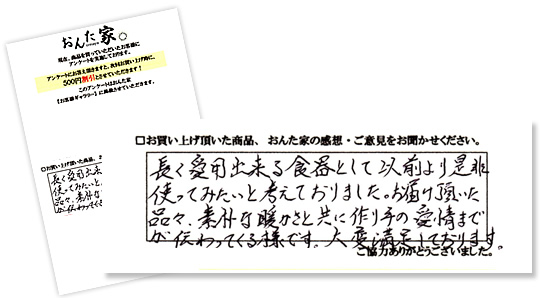 おんた家。
現在、商品を買っていただいたお客様に
アンケートを実施しております。
アンケートにお答え頂きますと、次回お買い上げ時に、
500円割引とさせていただきます！
このアンケートはおんた家
【お客様ギャラリー】に掲載させていただきます。
□お買い上げ頂いた商品、お
長く愛用出来
使ってみたいと
品々、素朴な
が伝わってく
□お買い上げ頂いた商品、おんた家の感想・ご意見をお聞かせください。
長く愛用出来る食器として以前より是非
使ってみたいと考えておりました。お届け頂いた
品々、素朴な暖かさと共に作り手の愛情まで
が伝わってくる様です。大変満足しております。
ご協力ありがとうございました。